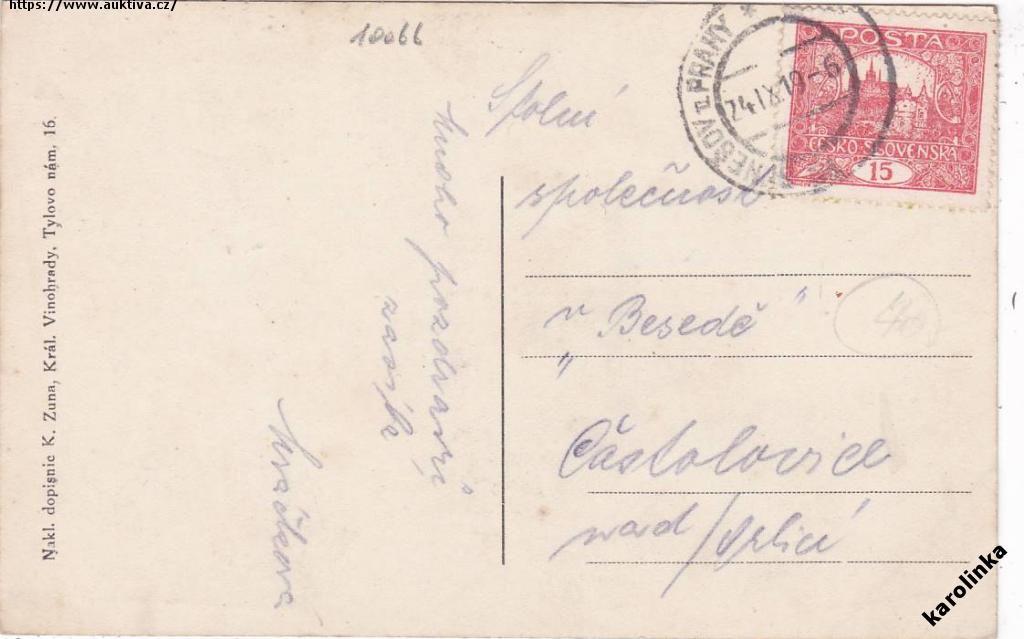 https://www.auktiva.cz/
10066
Nakl. dopisnic K. Zuna, Král. Vinohrady, Tylovo nám, 16.
mnoho pozdravů
zasílá
BENEŠOV U PRAHY *
24 IX 19-6
POSTA
ČESKO-SLOVENSKÁ
15
Stolní
společnost
v „Besedě“
Částolovice
nad/Orlicí
karolinka